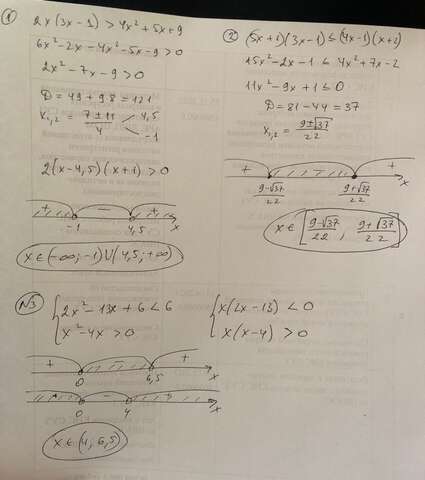 ① 2x(3x-1) > 4x²+5x+9
6x²-2x-4x²-5x-9>0
2x²-7x-9>0
D = 49+98=121
x₁,₂ = (7±11)/4 4,5 -1
2(x-4,5)(x+1)>0
+ - +
-1 4,5 x
x∈(-∞;-1)∪(4,5;+∞)
② (5x+1)(3x-1)≤(4x-1)(x+2)
15x²-2x-1≤4x²+7x-2
11x²-9x+1≤0
D=81-44=37
x₁,₂ = (9±√37)/22
+ - +
(9-√37)/22 (9+√37)/22 x
x∈[(9-√37)/22, (9+√37)/22]
№3 { 2x²-13x+6<6 { x(2x-13)<0
x²-4x>0 x(x-4)>0
+ - +
0 6,5 x
+ - +
0 4 x
x∈(4;6,5)